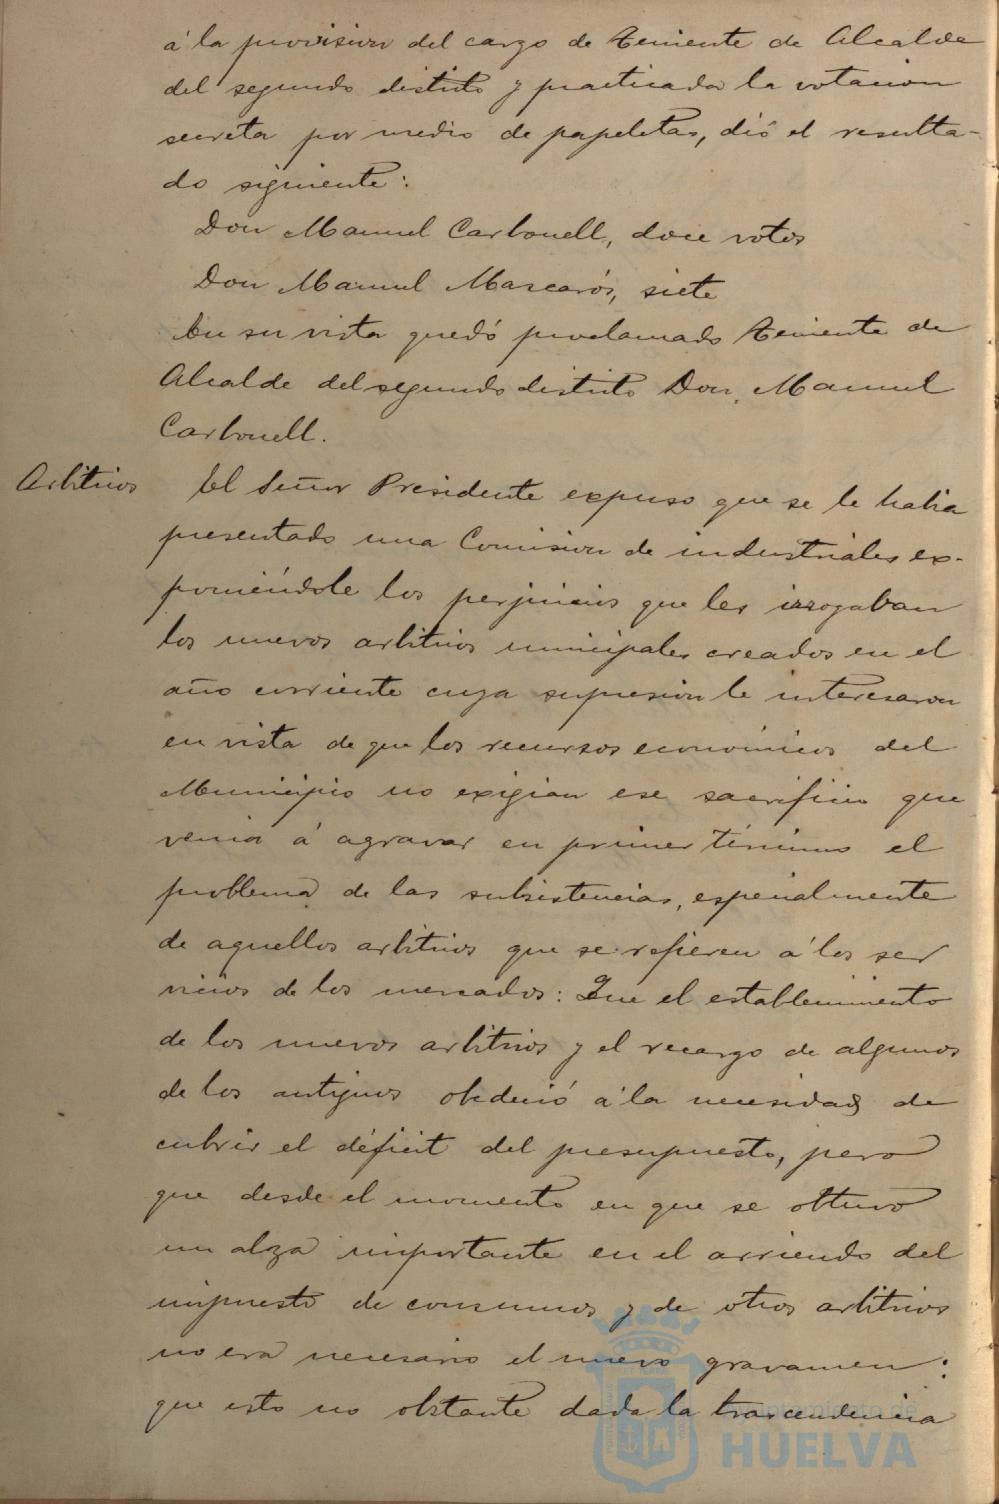 á la provision del cargo de Teniente de Alcalde
del segundo distrito y practicada la votacion
secreta por medio de papeletas, dió el resulta-
do siguiente:
Don Manuel Carbonell, doce votos
Don Manuel Mascarós, siete
En su vista quedó proclamado Teniente de
Alcalde del segundo distrito Don Manuel
Carbonell.
Arbitrios
El Señor Presidente expuso que se le habia
presentado una Comision de industriales ex-
poniéndole los perjuicios que les irrogaban
los nuevos arbitrios municipales creados en el
año corriente cuya supresion le interesaron
en vista de que los recursos económicos del
Municipio no exigian ese sacrificio que
venia á agravar en primer término el
problema de las subsistencias, especialmente
de aquellos arbitrios que se refieren á los ser
vicios de los mercados: Que el establecimiento
de los nuevos arbitrios y el recargo de algunos
de los antiguos obedeció á la necesidad de
cubrir el déficit del presupuesto, pero
que desde el momento en que se obtuvo
un alza importante en el arriendo del
impuesto de consumos y de otros arbitrios
no era necesario el nuevo gravamen:
que esto no obstante dada la trascendencia
Ayuntamiento de
HUELVA